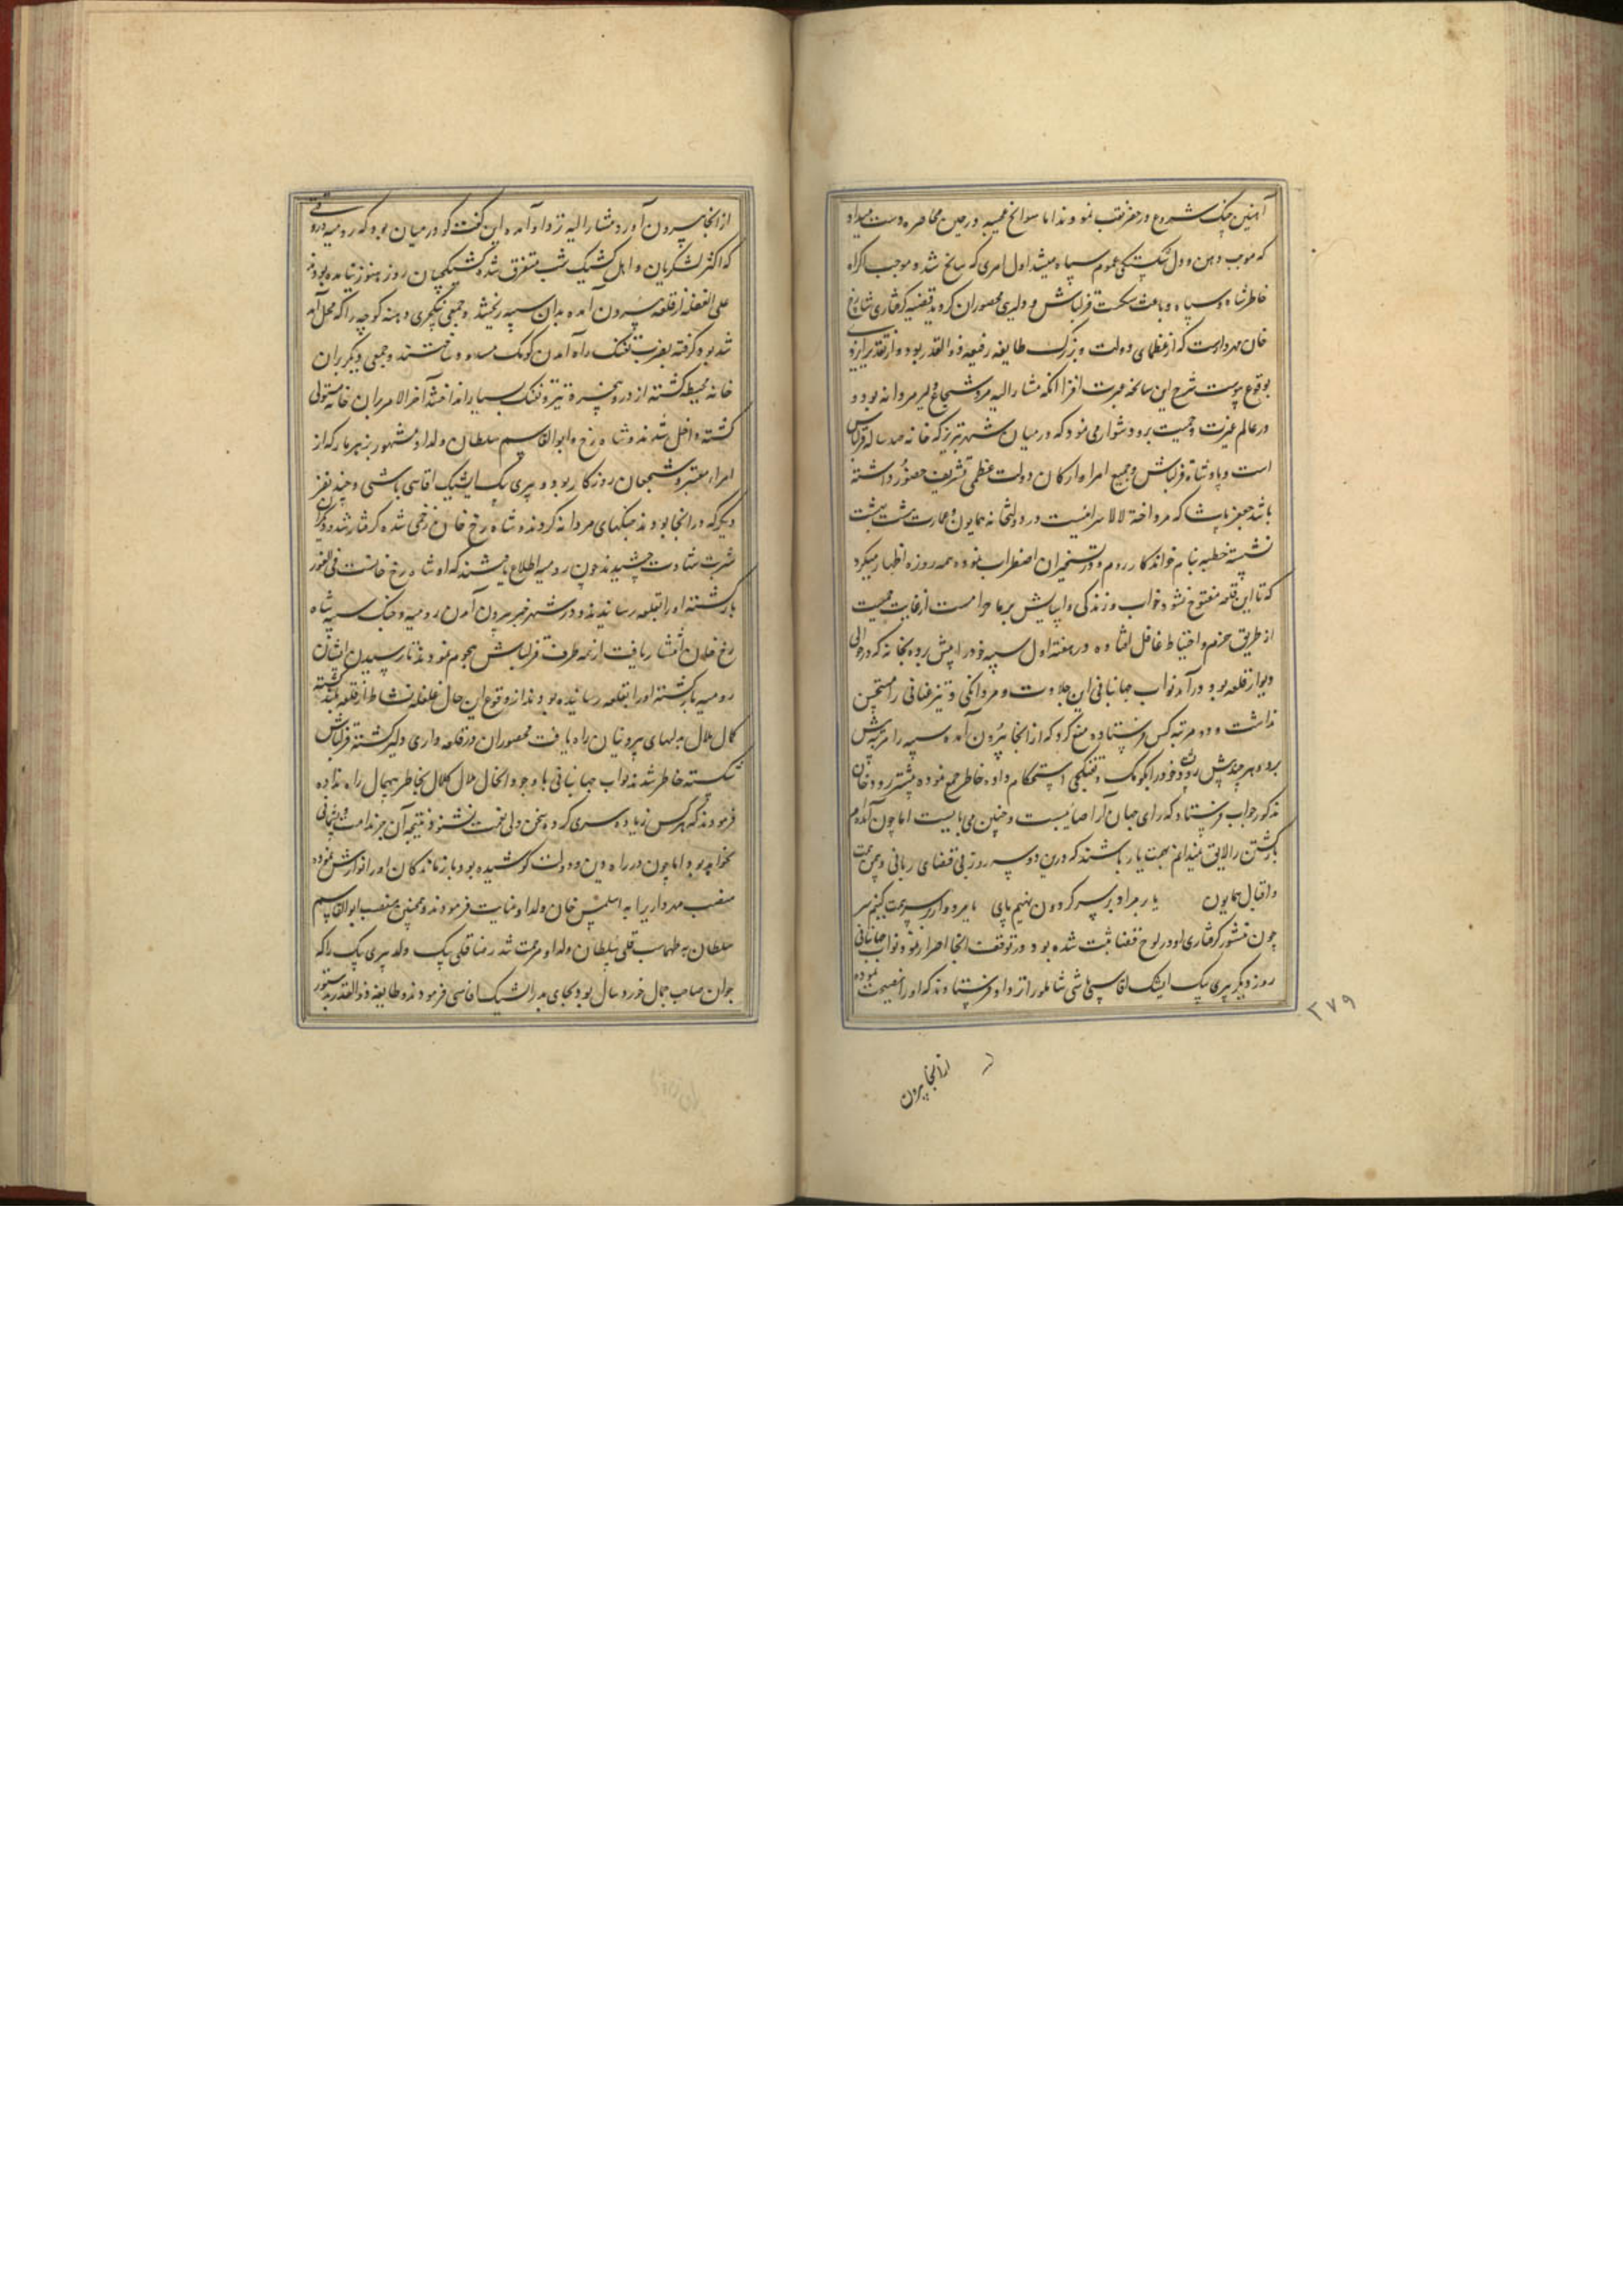 آهنین چنک شروع در حفر نقب نمودند اما سوانح عجیبه در حین محاصره دست میداد
که موجب وهن و دل شکستگی عموم سپاه میشد اول امری که سانح شد و موجب اکراه
خاطر شاه و سپاه و باعث شکست قزلباش و دلیری محصوران کردید قضیه کرفتاری شاهرخ
خان مهردارست که از عظمای دولت و بزرک طایفه رفیعه ذوالقدر بود و از تقدیر ایزدی
بوقوع پیوست شرح این سانحه عبرت افزا انکه مشارالیه مرد شجاع دلیر مردانه بود و
در عالم غیرت و حمیت برو دشوار می نمود که در میان شهر تبریز که خانه صد ساله قزلباش
است و پادشاه قزلباش و جمیع امراء و ارکان دولت عظمی تشریف حضور داشته
باشد جعفر پاشا که مرد اخته لالا سرائیست در دولتخانه همایون و عمارت هشت بهشت
نشسته خطبه بنام خواندکار روم و در تسخیر ان اضطراب نموده همه روزه اظهار میکرد
که تا این قلعه مفتوح نشود خواب و زندکی و اسایش بر ما حرامست از غایت حمیت
از طریق حزم و احتیاط غافل افتاده در هفته اول سیبه خود را پیش برده بخانه که در حوالی
دیوار قلعه بود درآمد نواب جهانبانی این جلادت و مردانکی و تیز عنانی را مستحسن
نداشت و دو مرتبه کس فرستاده منع کرد که از انجا بیرون آمده سیبه را مرتبه پیش
برد و هر چند پیش رود خود را بکومک و تفنکچی استحکام داده خاطر جمع نموده پیشتر رود خان
مذکور جواب فرستاد که رای جهان آرا صائبست و چنین می بایست اما چون آمده ام
بازکشتن را لایق نمیدانم بهمت یار باشند که درین دو سه روز بی قضای ربانی و بیمن همت
و اقبال همایون یا بر مراد بر سر کردون نهیم پای یا مردوار بر سر همت کنیم سر
چون منشور کرفتاری او در لوح قضا ثبت شده بود در توقف انجا اصرار نمود نواب جهانبانی
روز دیکر پیری بیک ایشک اقاسی باشی شاملو را نزد او فرستادند که او را نصیحت نموده
۲۷۹
از انجا بیرون
از انجا بیرون آورد مشارالیه نزد او آمده این کفت کو در میان بود که رومیه در وقتی
که اکثر لشکریان و اهل کشیک شب متفرق شده کشیکچیان روز هنوز نیامده بودند
علی الغفله از قلعه بیرون آمده بدان سیبه ریختند و جمعی ینکچری دهنه کوچه را که محل آمد
شد بود کرفته بضرب تفنک راه آمدن کومک مسدود ساختند و جمعی دیکر بران
خانه محیط کشته از در و پنجره تیر و تفنک بسیار انداختند آخر الامر بران خانه مستولی
کشته داخل شدند و شاه رخ و ابوالقاسم سلطان ولد او مشهور بزهر مار که از
امراء معتبر و شجعان روزکار بود و پیری بیک ایشیک اقاسی باشی و چند نفر
دیکر که در انجا بودند جنکهای مردانه کردند و شاه رخ خان زخمی شده کرفتار شد و دیکران
شربت شهادت چشیدند چون رومیه اطلاع یافتند که او شاه رخ خانست فی الفور
بازکشته او را بقلعه رسانیدند و در شهر خبر بیرون آمدن رومیه و جنک سیبه شاه
رخ خان انتشار یافت از همه طرف قزلباش هجوم نمودند تا رسیدن ایشان
رومیه بازکشته او را بقلعه رسانیده بودند از وقوع این حال غلغله نشاط از قلعه بلند کشته
کمال ملال بدلهای بیرونیان راه یافت محصوران در قلعه داری دلیر کشته قزلباش
شکسته خاطر شدند نواب جهانبانی با وجود انحال ملال کلال بخاطر بیهمال راه نداده
فرمودند که هر کس زیاده سری کرده سخن ولی نعمت نشنود نتیجه آن جز ندامت و پشیمانی
نخواهد بود اما چون در راه دین و دولت کوشیده بود بازماندکان او را نوازش نموده
منصب مهرداریرا به اسلمس خان ولد او عنایت فرمودند و همچنین منصب ابوالقاسم
سلطان به طهماسب قلی سلطان ولد او مرحمت شد رضا قلی بیک ولد پیری بیک را که
جوان صاحب جمال خورد سال بود بجای پدر ایشیک اقاسی فرمودند و طایفه ذوالقدر بدستور